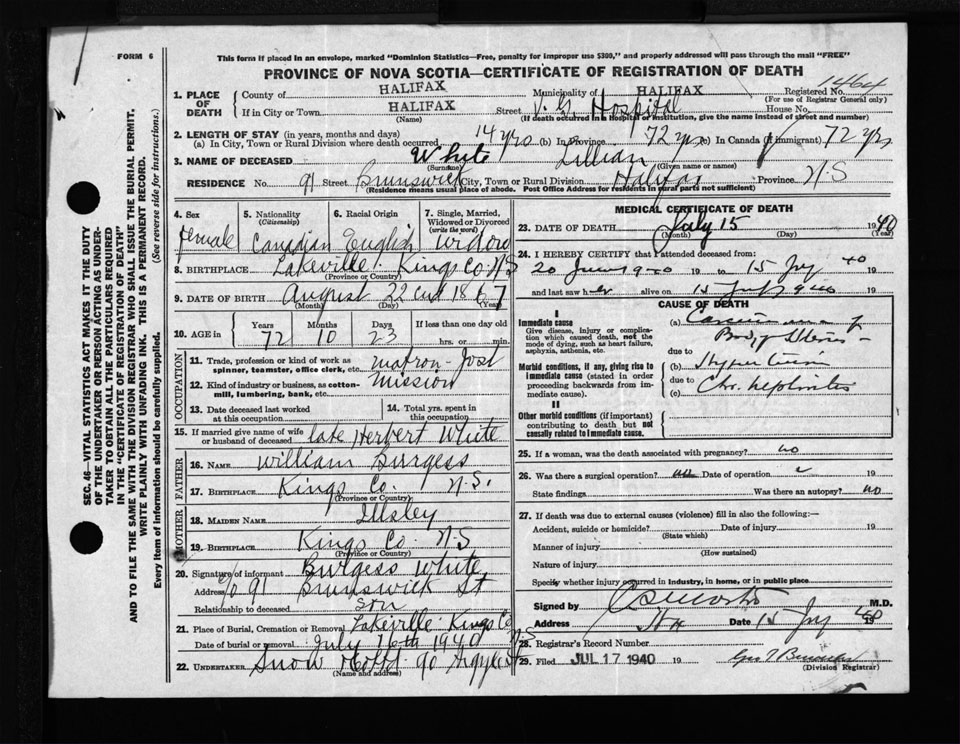 FORM 6
This form if placed in an envelope, marked "Dominion Statistics—Free, penalty for improper use $300," and properly addressed will pass through the mail "FREE"
PROVINCE OF NOVA SCOTIA—CERTIFICATE OF REGISTRATION OF DEATH
1. PLACE OF DEATH
County of HALIFAX Municipality of HALIFAX Registered No. 1464
(For use of Registrar General only)
If in City or Town HALIFAX Street V. G. Hospital House No.
(Name) (If death occurred in a Hospital or Institution, give the name instead of street and number)
2. LENGTH OF STAY (in years, months and days)
(a) In City, Town or Rural Division where death occurred 14 yrs (b) In Province 72 yrs (c) In Canada (if immigrant) 72 yrs
3. NAME OF DECEASED White Lillian
(Surname) (Given name or names)
RESIDENCE No. 91 Street Brunswick City, Town or Rural Division Halifax Province N-S
(Residence means usual place of abode. Post Office Address for residents in rural parts not sufficient)
4. Sex
female
5. Nationality
(Citizenship)
Canadian
6. Racial Origin
English
7. Single, Married, Widowed or Divorced
(write the word)
widow
8. BIRTHPLACE Lakeville Kings Co N S
(Province or Country)
9. DATE OF BIRTH August 22 1867
(Month) (Day) (Year)
10. AGE in
Years Months Days If less than one day old
72 10 23 hrs. or min.
OCCUPATION
11. Trade, profession or kind of work as spinner, teamster, office clerk, etc. matron - Jost
12. Kind of industry or business, as cotton-mill, lumbering, bank, etc. Mission
13. Date deceased last worked at this occupation
14. Total yrs. spent in this occupation
15. If married give name of wife or husband of deceased late Herbert White
FATHER
16. NAME William Burgess
17. BIRTHPLACE Kings Co. N.S.
(Province or Country)
MOTHER
18. MAIDEN NAME Illsley
19. BIRTHPLACE Kings Co N-S
(Province or Country)
20. Signature of informant Burgess White
Address 91 Brunswick St
Relationship to deceased son
21. Place of Burial, Cremation or Removal Lakeville Kings Co N-S
Date of burial or removal July 16th 1940
22. UNDERTAKER Snow 90 Argyle St
(Name and address)
MEDICAL CERTIFICATE OF DEATH
23. DATE OF DEATH July 15 1940
(Month) (Day) (Year)
24. I HEREBY CERTIFY that I attended deceased from:
20 June 1940 19 to 15 July 40 19
and last saw her alive on 15 July 1940 19
CAUSE OF DEATH
I
Immediate cause
Give disease, injury or complication which caused death, not the mode of dying, such as heart failure, asphyxia, asthenia, etc.
(a) Carcinoma of Body Uterus
due to
Morbid conditions, if any, giving rise to immediate cause (stated in order proceeding backwards from immediate cause).
(b)
due to
(c) Chr. Nephritis
II
Other morbid conditions (if important) contributing to death but not causally related to immediate cause.
25. If a woman, was the death associated with pregnancy? no
26. Was there a surgical operation? no Date of operation 19
State findings Was there an autopsy? no
27. If death was due to external causes (violence) fill in also the following:—
Accident, suicide or homicide? Date of injury 19
(State which)
Manner of injury
(How sustained)
Nature of injury
Specify whether injury occurred in industry, in home, or in public place
Signed by M.D.
Address Hx Date 15 July 1940
28. Registrar's Record Number
29. Filed JUL 17 1940 19
(Division Registrar)
SEC. 46—VITAL STATISTICS ACT MAKES IT THE DUTY OF THE UNDERTAKER OR PERSON ACTING AS UNDERTAKER TO OBTAIN ALL THE PARTICULARS REQUIRED IN THE "CERTIFICATE OF REGISTRATION OF DEATH"
AND TO FILE THE SAME WITH THE DIVISION REGISTRAR WHO SHALL ISSUE THE BURIAL PERMIT.
WRITE PLAINLY WITH UNFADING INK. THIS IS A PERMANENT RECORD.
Every item of information should be carefully supplied. (See reverse side for instructions.)